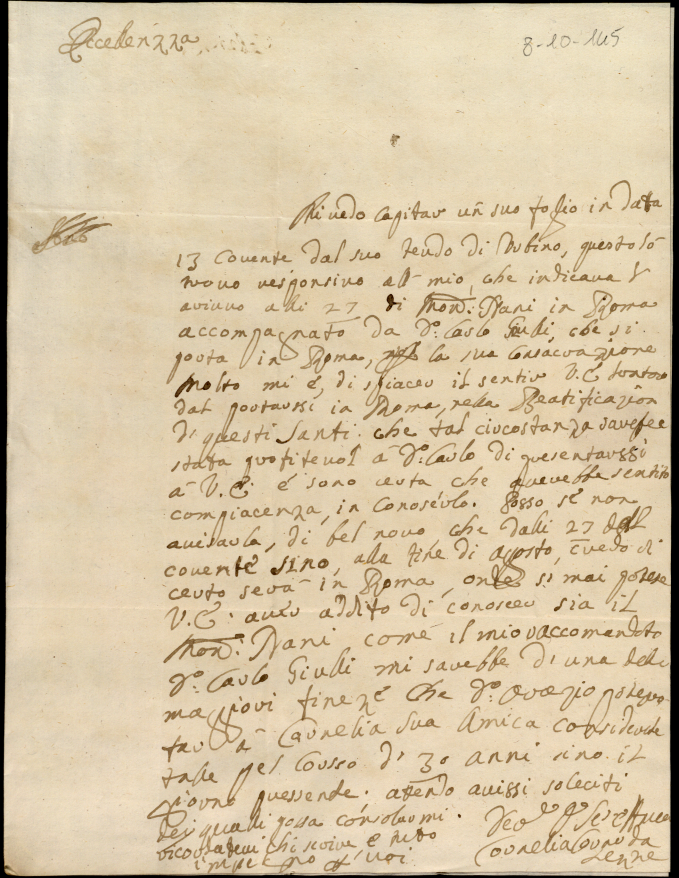 Eccellenza
8-10-145
Rivedo Capitar un suo foglio in data
13 Corente dal suo feudo di Rubino, questo lo
trovo responsivo all mio, che indicava l'
arivvo alli 27 di Mon.r Nani in Roma
accompagnato da D.n Carlo Giulli, che si
porta in Roma, la sua Consacrazione
Molto mi é, di spiacer il sentir V.E. lontano
dal portarssi in Roma, nella Beatificazion
di questi Santi. che tal circostanza sarebe
stata profitevol à D.n Carlo di presentarssi
à V.E. é sono certa che averebbe sentito
compiacenza, in Conoserlo. Posso se non
avisarla, di bel novo che dalli 27 dell
corente sino, alla fine di agosto, credo di
certo serà in Roma, onde si mai potese
V.E. aver addito di conoscer sia il
Mon.r Nani come il mio raccomandato
D.n Carlo Giulli mi sarebbe d'una delle
magiori fineze che D.n Orazio
far à Cornelia Sua Amica
pel Corsso d' 30 anni sino il
giorno pressende. atendo avissi soleciti
dei quali possa consolarmi.
ricordatevi chi scrive é tutto
impegno p. voi
Cornelia